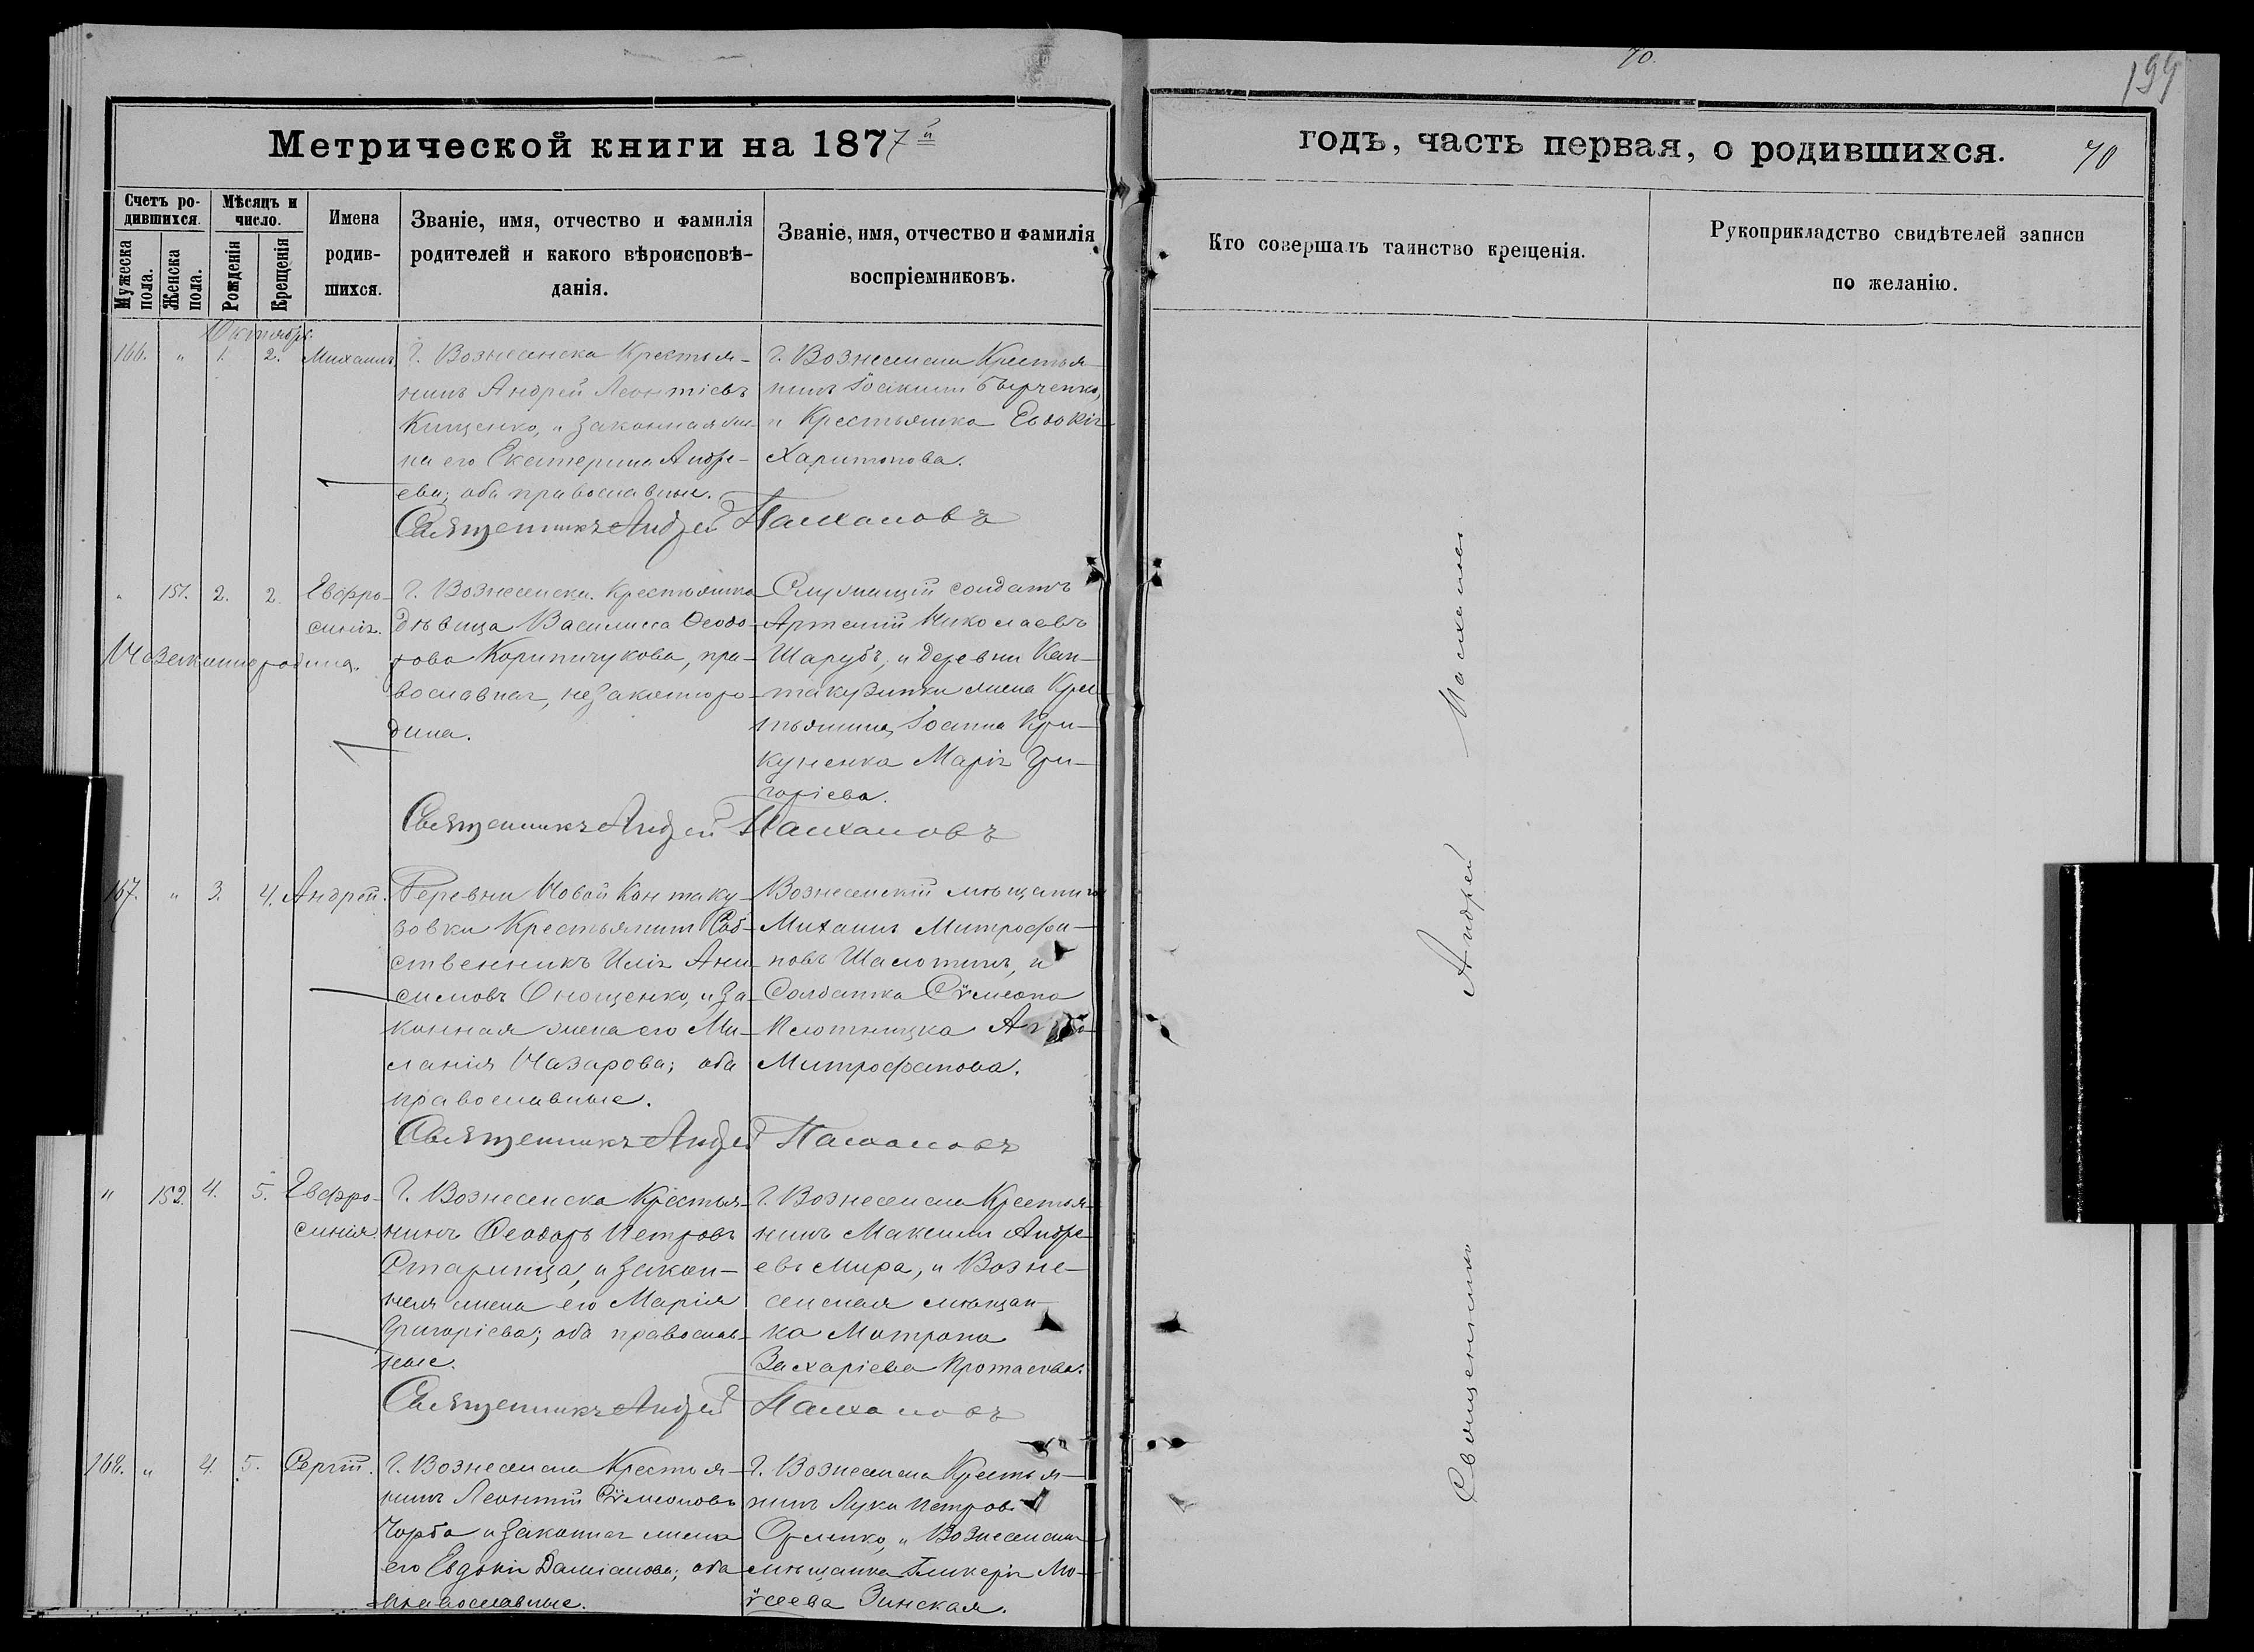 70.
199
Метрической книги на 1877й
годъ, часть первая, о родившихся.
70
Счетъ ро-
дившихся.
Мужеска пола.
Женска пола.
Мѣсяцъ и
число.
Рожденія
Крещенія
Имена
родив-
шихся.
Званіе, имя, отчество и фамилія
родителей и какого вѣроисповѣ-
данія.
Званіе, имя, отчество и фамилія
воспріемниковъ.
Кто совершалъ таинство крещенія.
Рукоприкладство свидѣтелей записи
по желанію.
Октябрь.
166. " 1. 2. Михаилъ
Г. Вознесенска Крестья-
нинъ Андрей Леонтіевъ
Кищенко, и законная же-
на его Екатерина Андре-
ева; оба православные.
Г. Вознесенска Крестья-
нинъ Іоакимъ
и Крестьянка Евдокія
Харитонова.
Священникъ Андрей
" 151. 2. 2. Евфро-
синія.
Незаконнорождена.
Г. Вознесенска Крестьянка
Дѣвица Василисса Ѳеодо-
рова Корипчукова, пра-
вославная, незаконноро-
дила.
Служащій солдатъ
Артемій Николаевъ
Шарубъ, и Деревни Кан-
такузинки жена Крес-
тьянина Іоанна Кри-
куненка Марія Гри-
горіева.
Священникъ Андрей
167. " 3. 4. Андрей.
Деревни Новой Кантаку-
зовки Крестьянинъ Соб-
ственникъ Илія Ани-
симовъ Онощенко, и за-
конная жена его Ме-
ланія Назарова; оба
православные.
Вознесенскій мѣщанинъ
Михаилъ Митрофа-
новъ Шалотинъ, и
Солдатка Сѵмеона
Плотницка
Митрофанова.
Священникъ Андрей
" 152. 4. 5. Евфро-
синія.
Г. Вознесенска Крестья-
нинъ Ѳеодоръ Петровъ
Старинца, и закон-
ная жена его Марія
Григоріева; оба православ-
ные.
Г. Вознесенска Крестья-
нинъ Максимъ Андре-
евъ Мира, и Возне-
сенская мѣщан-
ка Матрона
Захаріева Протасова.
Священникъ Андрей
168. " 4. 5. Сергій.
Г. Вознесенска Крестья-
нинъ Леонтій Сѵмеоновъ
Чорба и законная жена
его Евдокія Даміанова; оба
православные.
Г. Вознесенска Крестья-
нинъ Лука Петровъ
и Вознесенская
мѣщанка Гликерія Мо-
ѵсеева Зинская.
Священникъ Андрей